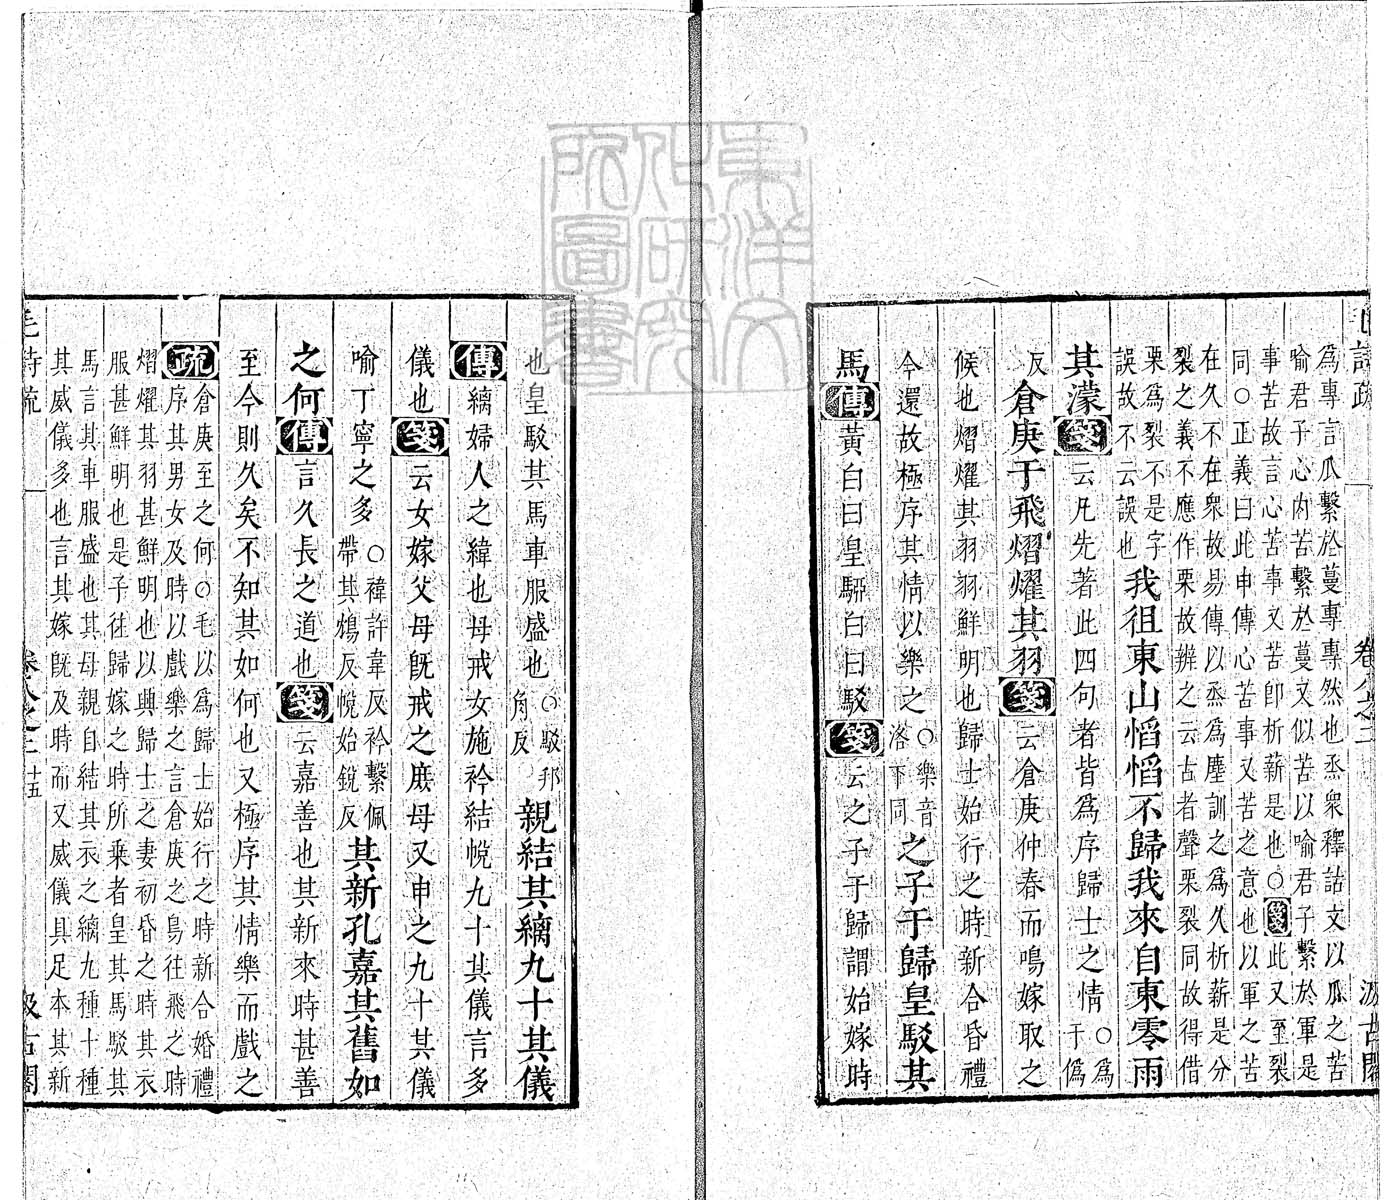 毛詩疏 卷八之二 汲古閣
為專言瓜繫於蔓專專然也烝衆釋詁文以瓜之苦
喻君子心内苦繫於蔓又似苦以喻君子繫於軍是
事苦故言心苦事又苦卽析薪是也○箋此又至裂
同○正義曰此申傳心苦事又苦之意也以軍之苦
在久不在衆故易傳以烝為塵訓之為久析薪是分
裂之義不應作栗故辨之云古者聲栗裂同故得借
栗為裂不是字
誤故不云誤也我徂東山慆慆不歸我來自東零雨
其濛箋云凡先著此四句者皆為序歸士之情○為
于偽
反倉庚于飛熠燿其羽箋云倉庚仲春而鳴嫁取之
候也熠燿其羽羽鮮明也歸士始行之時新合昏禮
今還故極序其情以樂之○樂音
洛下同之子于歸皇駁其
馬傳黃白曰皇騢白曰駁箋云之子于歸謂始嫁時
也皇駁其馬車服盛也○駁邦
角反親結其縭九十其儀
傳縭婦人之褘也母戒女施衿結帨九十其儀言多
儀也箋云女嫁父母旣戒之庶母又申之九十其儀
喻丁寧之多○褘許韋反衿繫佩
帶其鴆反帨始銳反其新孔嘉其舊如
之何傳言久長之道也箋云嘉善也其新來時甚善
至今則久矣不知其如何也又極序其情樂而戲之
疏倉庚至之何○毛以為歸士始行之時新合婚禮
序其男女及時以戲樂之言倉庚之鳥往飛之時
熠燿其羽甚鮮明也以興歸士之妻初昏之時其衣
服甚鮮明也是子往歸嫁之時所乘者皇其馬駁其
馬言其車服盛也其母親自結其衣之縭九種十種
其威儀多也言其嫁旣及時而又威儀具足本其新
毛詩疏 卷八之二 十五 汲古閣